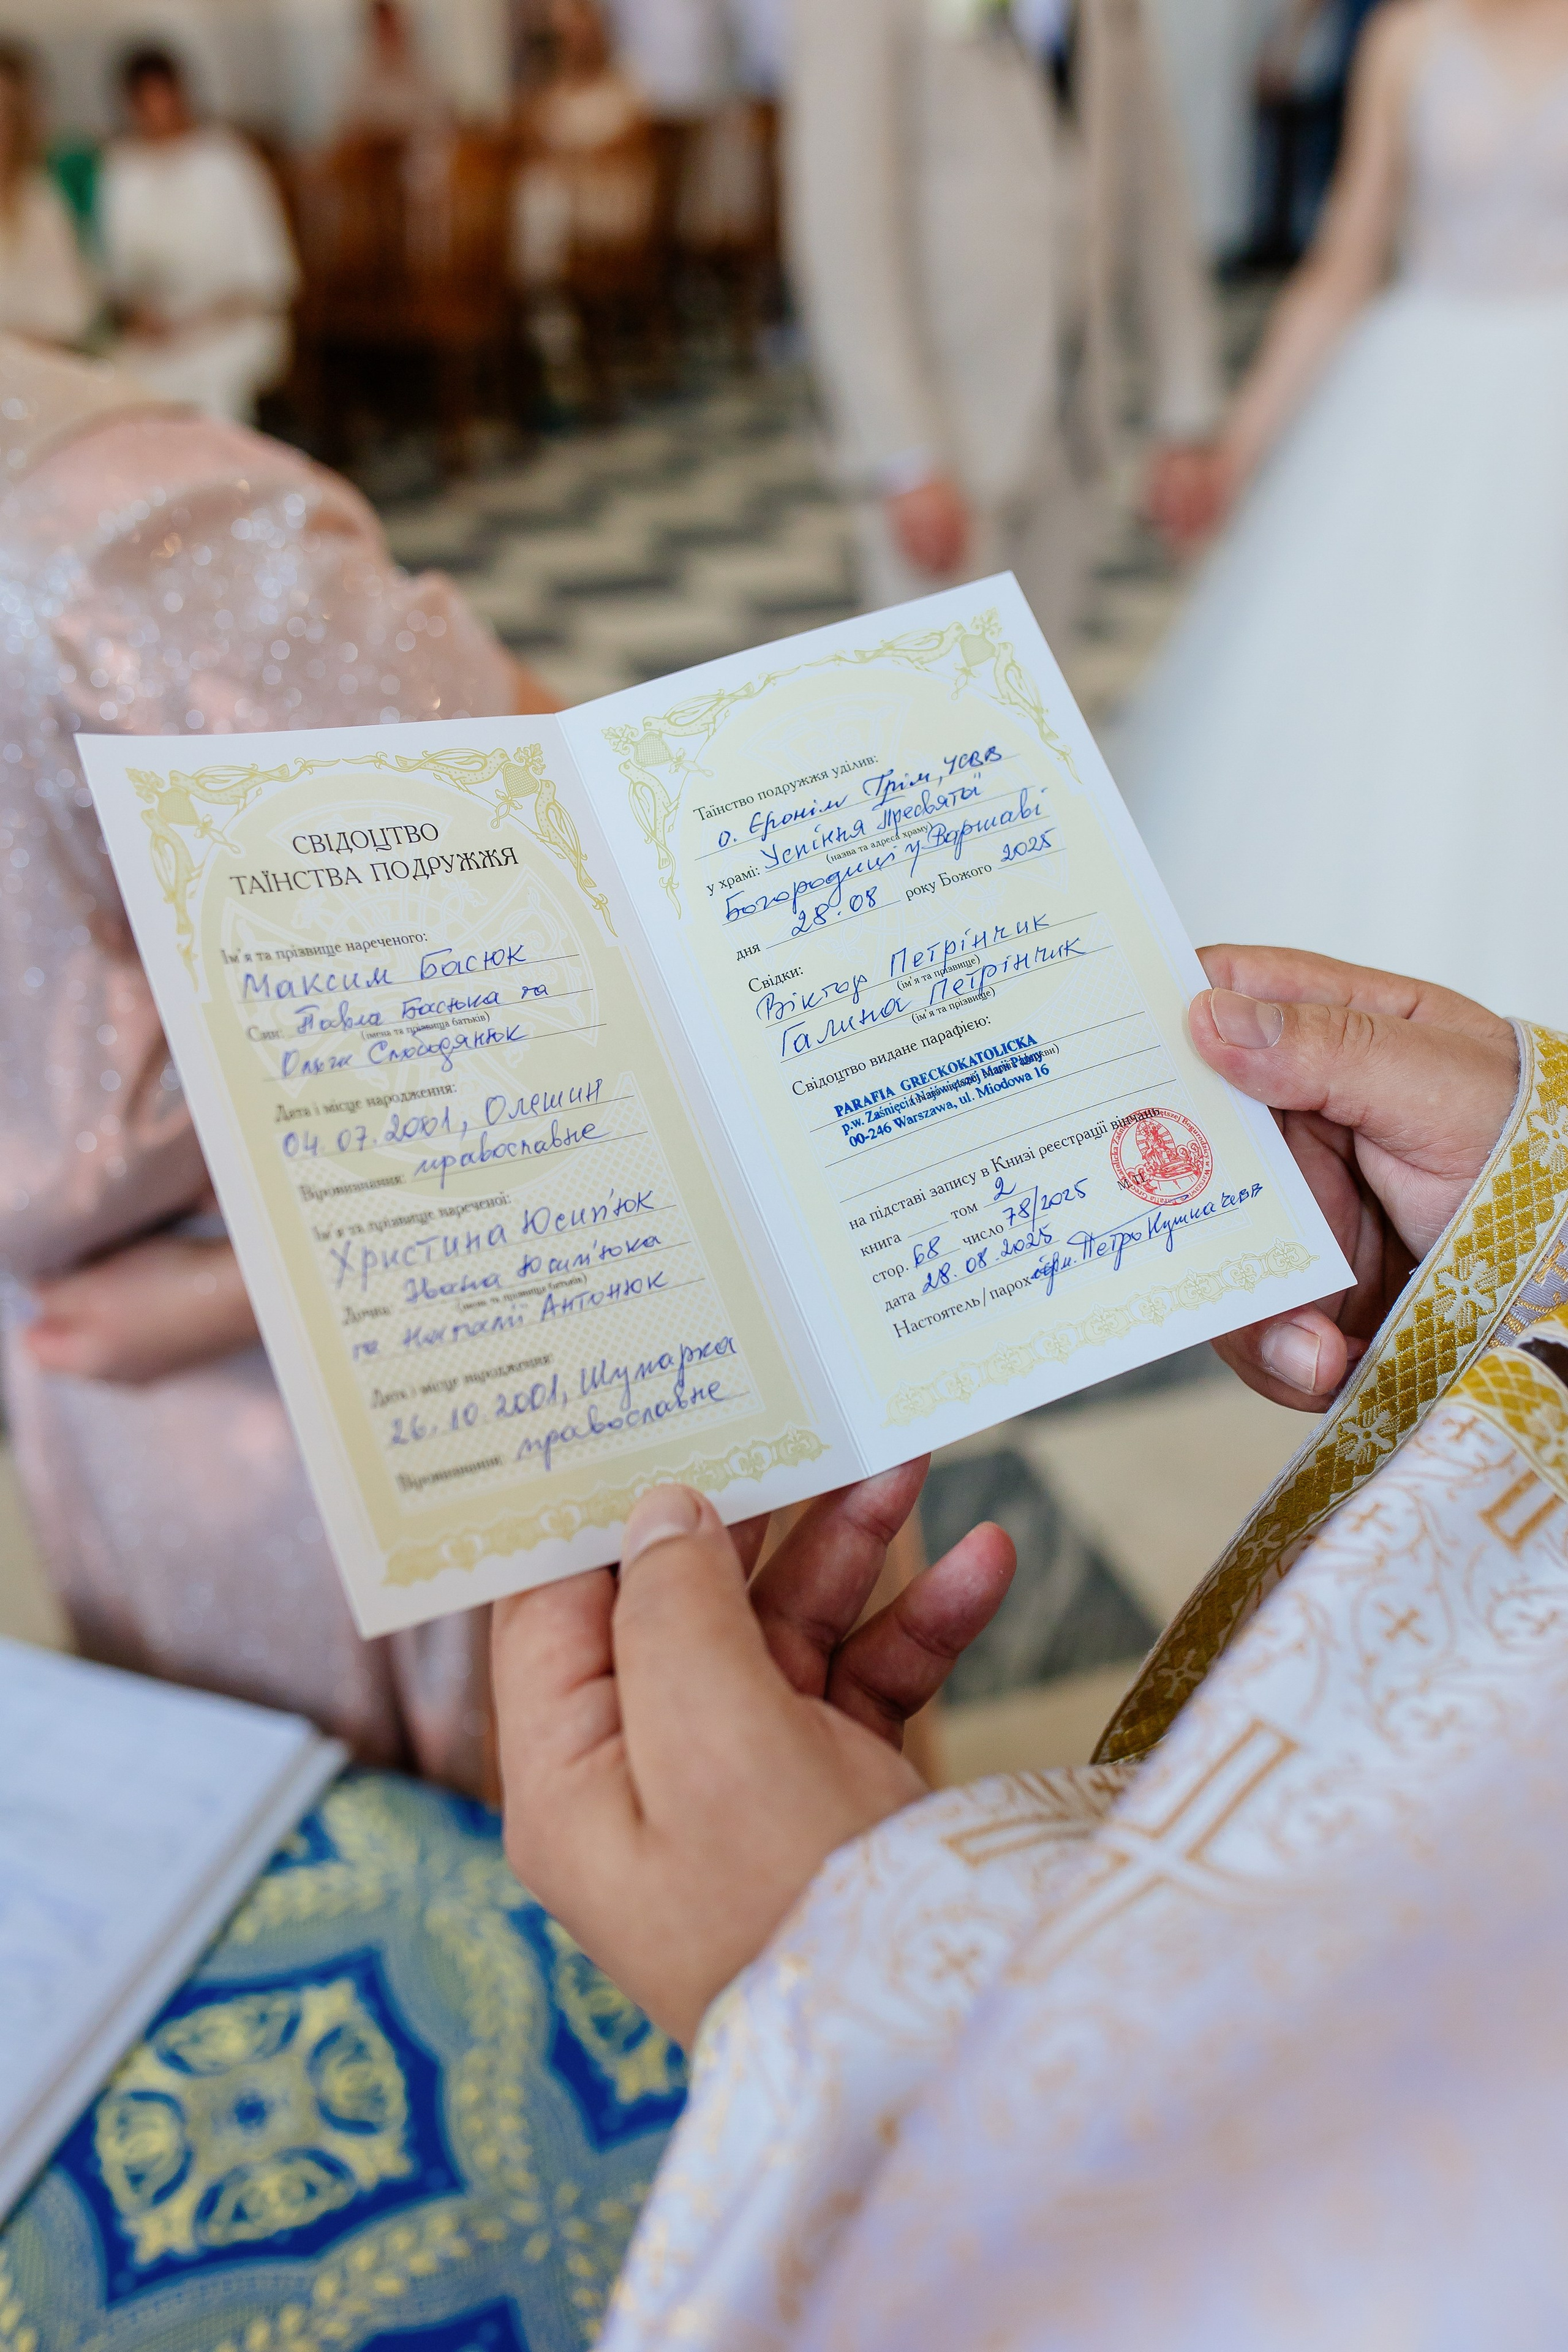 СВІДОЦТВО
ТАЇНСТВА ПОДРУЖЖЯ
Ім'я та прізвище нареченого:
Максим Басюк
Син: Павла Басюка та
(імена та прізвища батьків)
Ольги Слободянюк
Дата і місце народження:
04.07.2001, Олешин
Віровизнання: православне
Ім'я та прізвище нареченої:
Христина Юсип'юк
Дочка: Івана Юсип'юка
(імена та прізвища батьків)
та Наталії Антонюк
Дата і місце народження:
26.10.2001, Шумарка
Віровизнання: православне
Таїнство подружжя уділив:
о. Єронім Грім, ЧСВВ
у храмі: Успіння Пресвятої
(назва та адреса храму)
Богородиці у Варшаві
дня 28.08 року Божого 2025
Свідки:
Віктор Петрінчик
(ім'я та прізвище)
Галина Петрінчик
(ім'я та прізвище)
Свідоцтво видане парафією:
PARAFIA GRECKOKATOLICKA
p.w. Zaśnięcia Najświętszej Marii Panny
00-246 Warszawa, ul. Miodowa 16
на підставі запису в Книзі реєстрації вінчань
книга том 2
стор. 68 число 78/2025
М.П.
дата 28.08.2025
Настоятель/парох Петро Кушка ЧСВВ